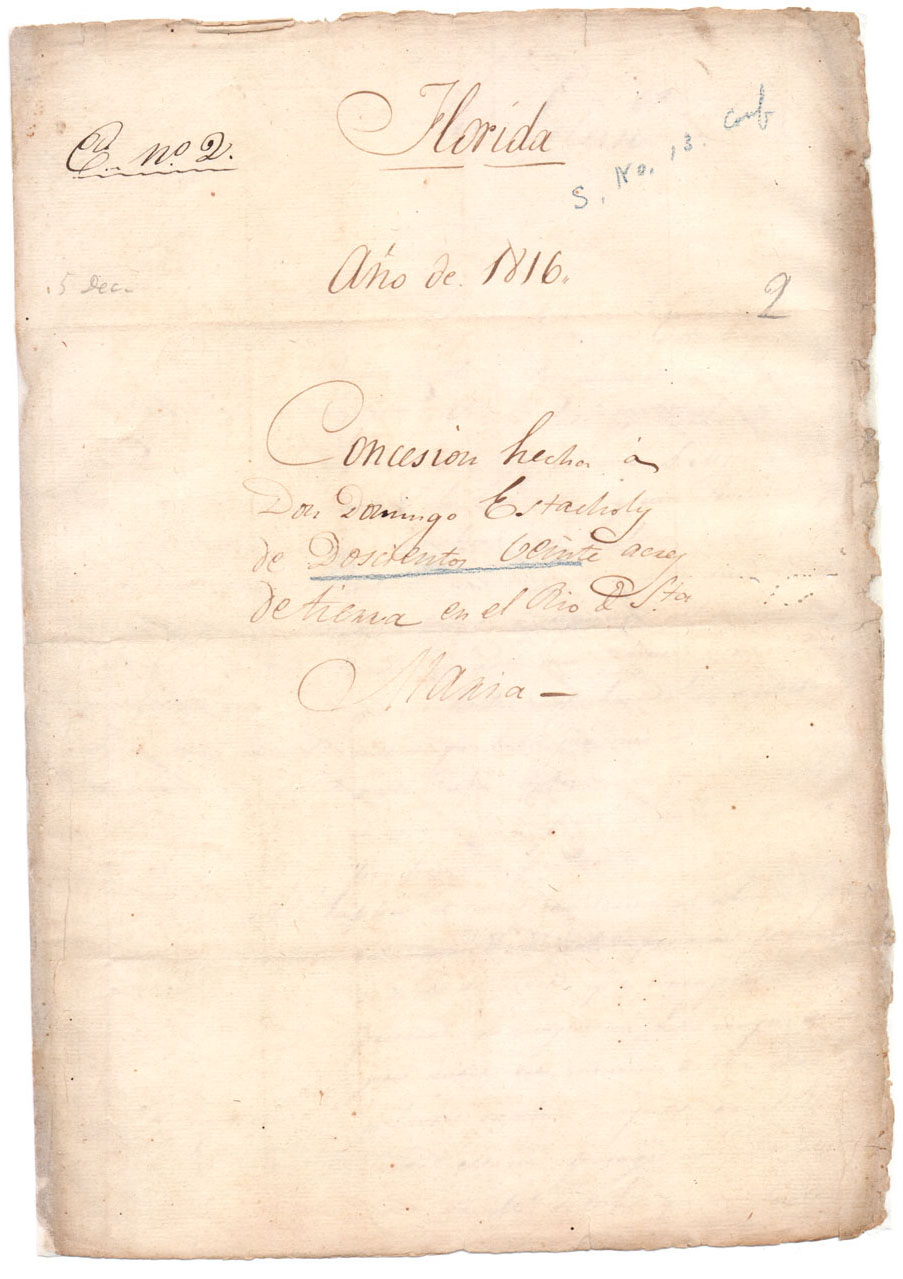 Florida
Ca. no. 2.
S. No. 13. Conf
Año de 1816.
15 Dec.
2
Concesion hecha á
Don Domingo Estacholy
de Doscientos Veinte acres
de tierra en el Rio de Sta
Maria —